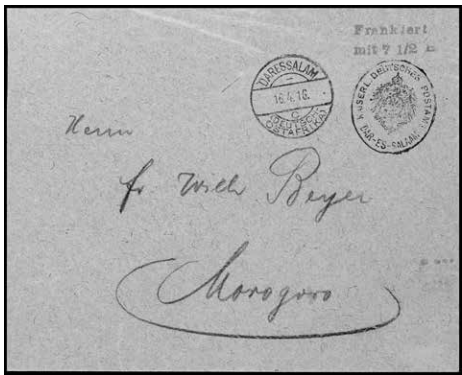 Frankiert
mit 7 1/2 H
DARESSALAM
16.4.16.
c
(DEUTSCH-
OSTAFRIKA)
KAISERL. DEUTSCHES POSTAMT
DAR-ES-SALAAM
Herrn
Fr Wilh Beyer
Morogoro